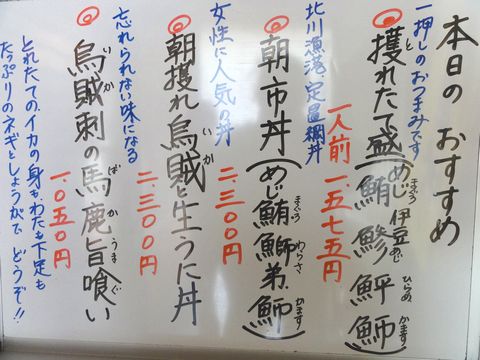 本日の おすすめ
一押しのおつまみです
◎獲れたて盛(めじ鮪 伊豆鯵 鮃 魳)
一人前 一、五七五円
北川漁港、定置網丼
◎朝市丼(めじ鮪 鰤弟 魳)
二、三〇〇円
女性に人気の丼
朝獲れ烏賊と生うに丼
二、三〇〇円
忘れられない味になる
◎烏賊刺の馬鹿旨喰い
一、〇五〇円
とれたての、イカの身も、わたも下足も
たっぷりのネギとしょうがで どうぞ!!